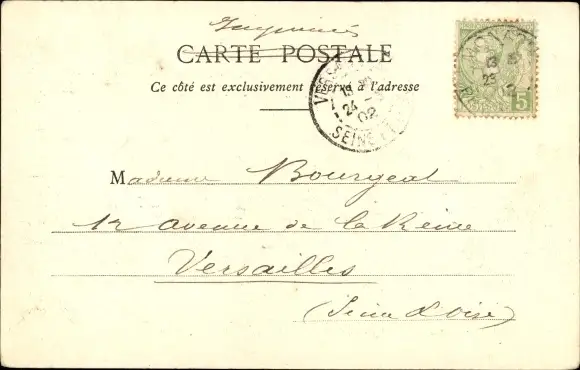 Imprimés
CARTE POSTALE
Ce côté est exclusivement réservé à l'adresse
VERSAILLES
24 -
02
SEINE
23
5
Madame Bourgeat
12 avenue de la Reine
Versailles
(Seine & Oise)